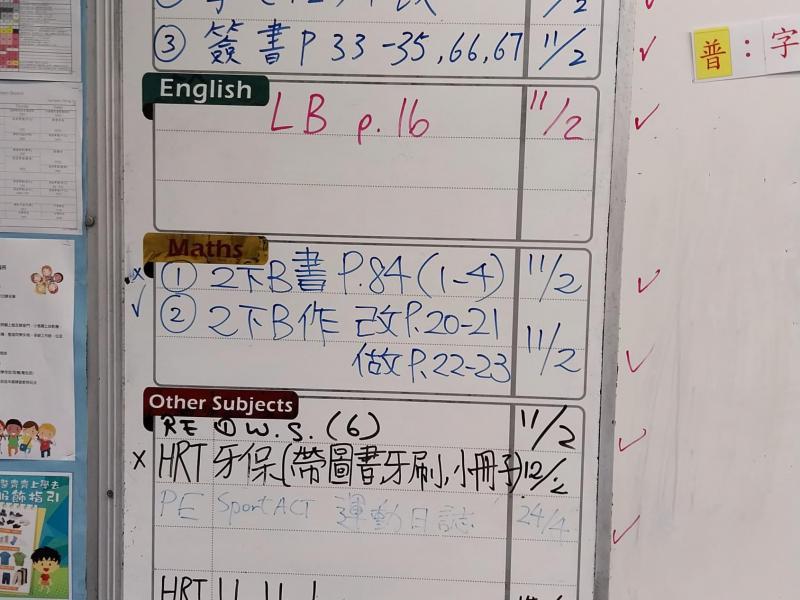 ③ 簽書 P 33-35, 66, 67 11/2
普 : 字
English
LB p. 16 11/2
Maths
① 2下B書 P.84 (1-4) 11/2
② 2下B作 改P.20-21
做P.22-23 11/2
Other Subjects
RE ① W.S. (6) 11/2
HRT 牙保(帶圖書牙刷,小冊子) 12/2
PE Sport ACT 運動日誌 24/4
服飾指引
HRT